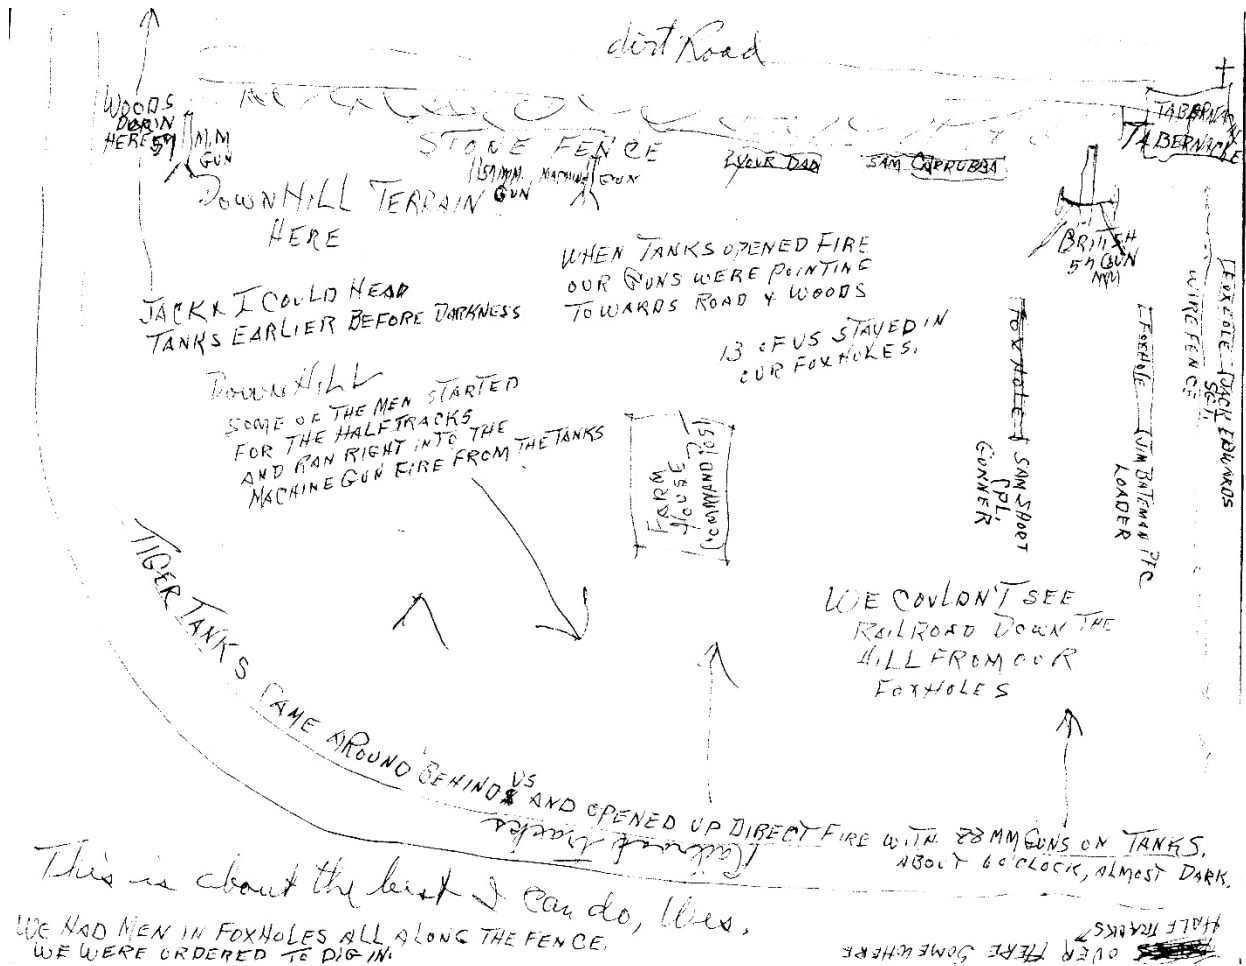 dirt Road
WOODS
DOWN
HERE 57
M.M
GUN
STONE FENCE
57 MM. MACHINE GUN
GUN
YOUR DAD
SAM CARRUBBA
TABERNACLE
TABERNACLE
DOWNHILL TERRAIN
HERE
BRITISH
57 GUN
MM
WHEN TANKS OPENED FIRE
OUR GUNS WERE POINTING
TOWARDS ROAD & WOODS
JACK & I COULD HEAD
TANKS EARLIER BEFORE DARKNESS
13 OF US STAYED IN
OUR FOXHOLES.
DOWNHILL
SOME OF THE MEN STARTED
FOR THE HALFTRACKS
AND RAN RIGHT INTO THE
MACHINE GUN FIRE FROM THE TANKS
FARM
HOUSE
(COMMAND POST)
FOXHOLE SAM SHORT
CPL.
GUNNER
FOXHOLE JIM BATEMAN PFC
LOADER
WIRE FENCE
FOXHOLE JACK EDWARDS
SGT.
WE COULDN'T SEE
RAILROAD DOWN THE
HILL FROM OUR
FOXHOLES
TIGER TANKS CAME AROUND BEHIND US AND OPENED UP DIRECT FIRE WITH 88 MM GUNS ON TANKS.
ABOUT 6 O'CLOCK, ALMOST DARK.
Railroad tracks
This is about the best I can do, Wes.
WE HAD MEN IN FOXHOLES ALL ALONG THE FENCE.
WE WERE ORDERED TO DIG IN.
HALF TRACKS
OVER HERE SOMEWHERE